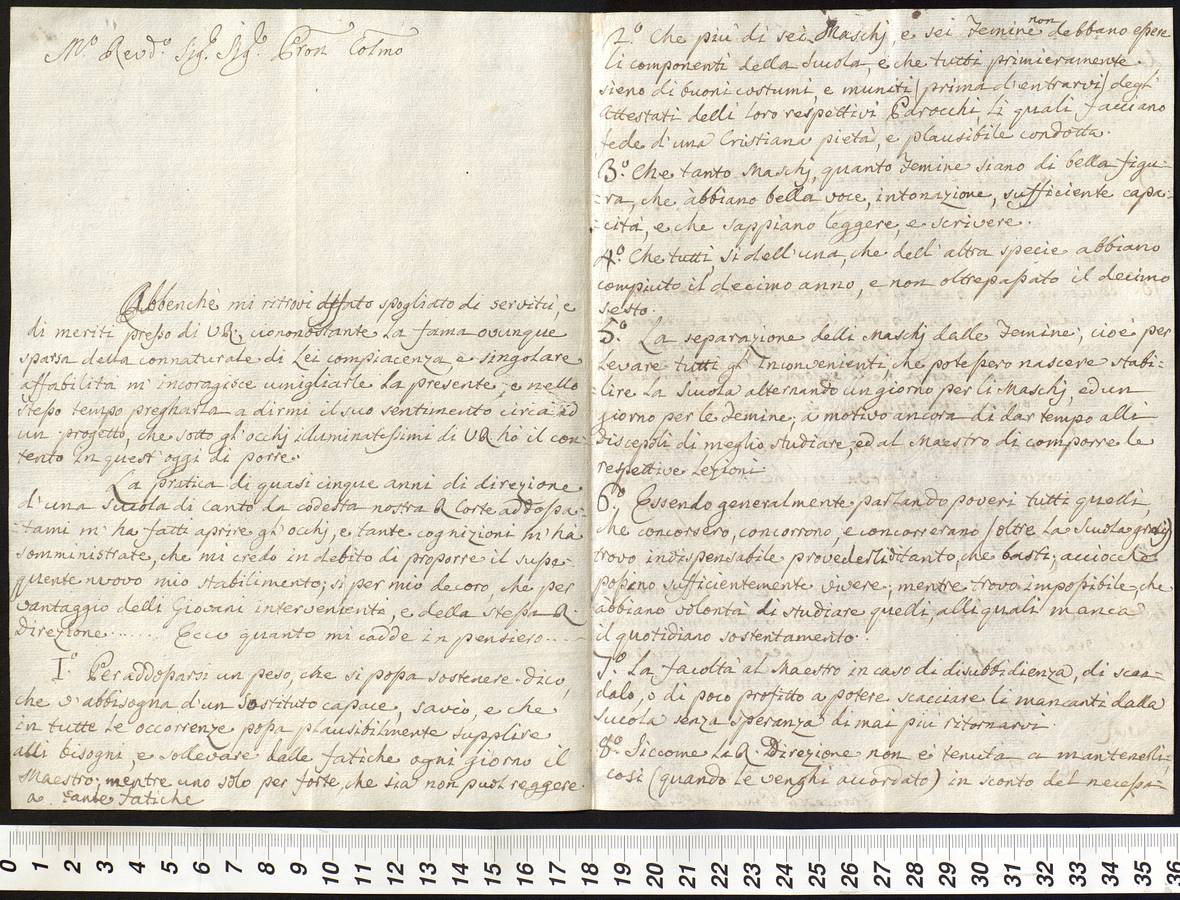 M.º Revd.º Sig.r Sig.r Pron Colmo
Abbenchè mi ritrovi affato spogliato di servitù, e
di meriti presso di VR, ciononostante la fama ovunque
sparsa della connaturale di Lei compiacenza e singolare
affabilità m'incoragisce umigliarle la presente, e nello
stesso tempo pregharla a dirmi il suo sentimento circa ad
un progetto, che sotto gl'occhj illuminatissimi di VR hò il con=
tento in quest'oggi di porre.
La pratica di quasi cinque anni di direzione
d'una Scuola di Canto da codesta nostra R Corte addossa=
tami m'ha fatti aprire gl'occhj, e tante cognizioni m'ha
somministrate, che mi credo in debito di proporre il susse=
guente nuovo mio stabilimento; sì per mio decoro, che per
vantaggio delli Giovani intervenienti, e della stessa R.
Direzione ...... Ecco quanto mi cadde in pensiero....
I.º Per addossarsi un peso, che si possa sostenere dico,
che v'abbisogna d'un Sostituto capace, savio, e che
in tutte le occorrenze possa plausibilmente supplire
alli bisogni, e sollevare dalle fatiche ogni giorno il
Maestro; mentre uno solo per forte, che sia non puol reggere
a tante fatiche
2.º Che più di sei Maschj, e sei Femine non debbano essere
li componenti della Scuola, e che tutti primieramente
sieno di buoni costumi, e muniti (prima d'entrarvi) degl'
Attestati delli loro respettivi Parocchi, li quali facciano
fede d'una Cristiana pietà, e plausibile condotta.
3.º Che tanto Maschj, quanto Femine siano di bella figu=
=ra, che àbbiano bella voce, intonazione, sufficiente capa=
=cità, e che sappiano leggere, e scrivere.
4.º Che tutti sì dell'una, che dell'altra specie abbiano
compiuto il decimo anno, e non oltrepassato il decimo
sesto.
5.º La separazione delli Maschj dalle Femine; cioè per
levare tutti gl'inconvenienti che potessero nascere stabi=
=lire la Scuola alternando un giorno per li Maschj, ed un
giorno per le Femine; a motivo ancora di dar tempo alli
Discepoli di meglio studiare, ed al Maestro di comporre le
respettive Lezioni
6.º Essendo generalmente parlando poveri tutti quelli
che concorsero, concorrono, e concorrerano (oltre la Scuola gratis)
trovo indispensabile provederli di tanto, che basti; acciocchè
possano sufficientemente vivere; mentre trovo impossibile, che
àbbiano volontà di studiare quelli, alli quali manca
il quotidiano sostentamento.
7.º La facoltà al Maestro in caso di disubbidienza, di scan=
dalo, o di poco profitto a potere scacciare li mancanti dalla
Scuola senza speranza di mai più ritornarvi.
8.º Siccome la R. Direzione non è tenuta a mantenerli,
così (quando le venghi accordato) in sconto del necessa=
0 1 2 3 4 5 6 7 8 9 10 11 12 13 14 15 16 17 18 19 20 21 22 23 24 25 26 27 28 29 30 31 32 33 34 35 36